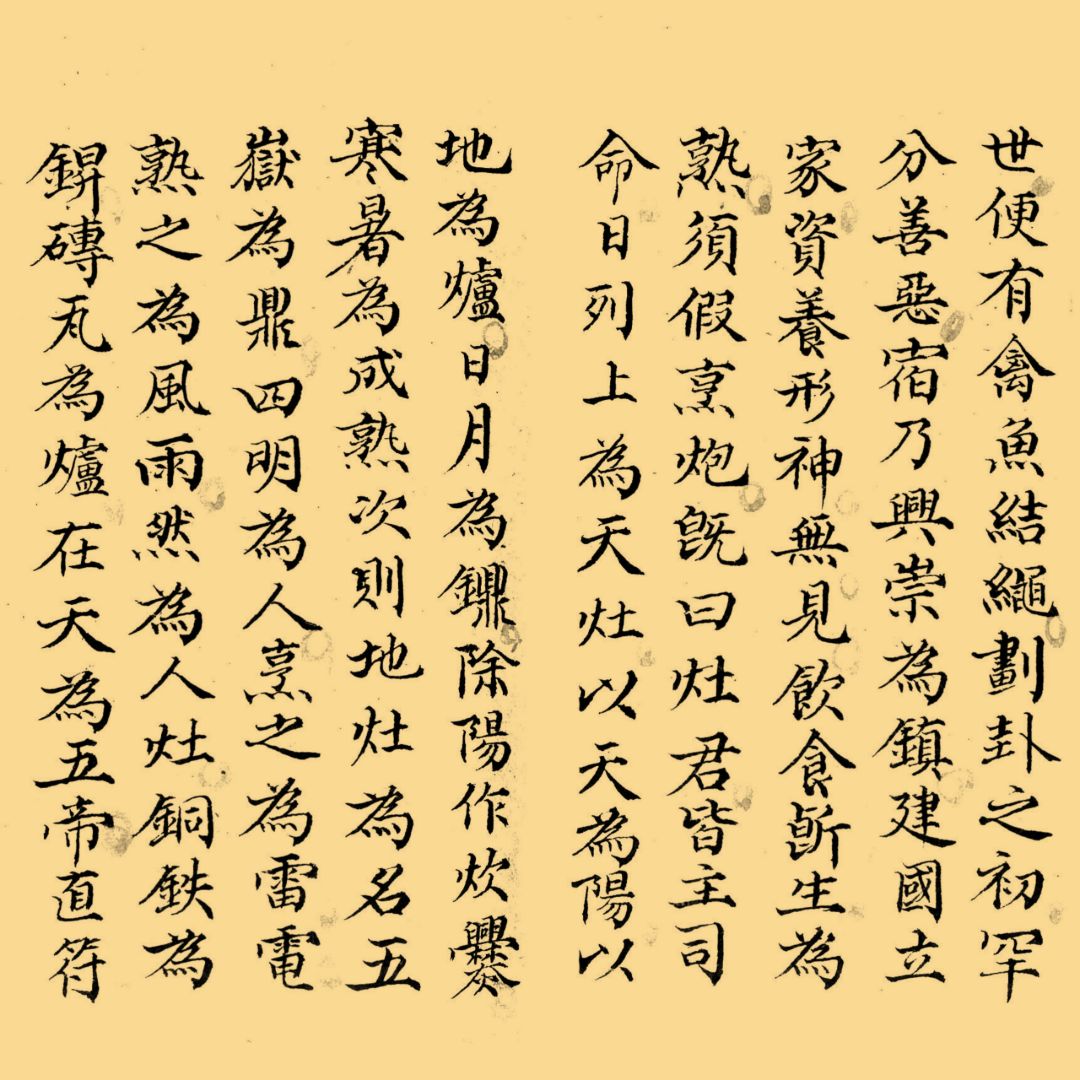 世便有禽魚結繩劃卦之初罕
分善惡宿乃興崇為鎮建國立
家資養形神無見飲食斫生為
熟須假烹炮旣曰灶君皆主司
命日列上為天灶以天為陽以
地為爐日月為鐤除陽作炊爨
寒暑為成熟次則地灶為名五
嶽為鼎四明為人烹之為雷電
熟之為風雨然為人灶銅鉄為
鍋磚瓦為爐在天為五帝直符